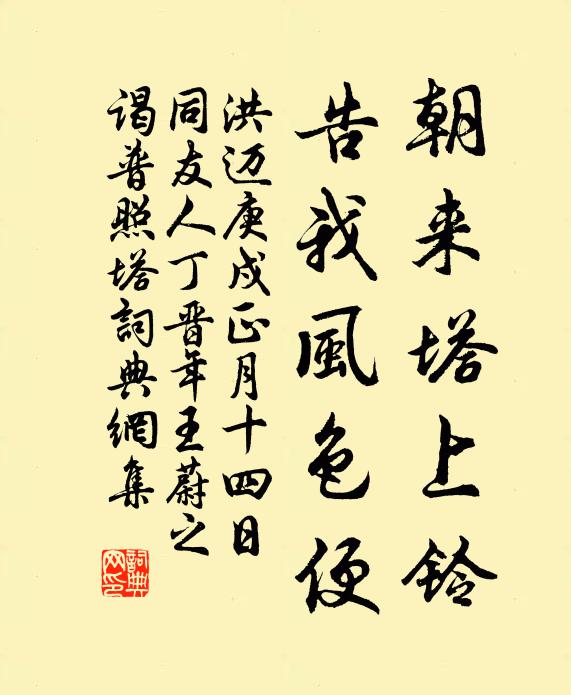 朝来塔上鈴
告我風色便
洪迈庚戌正月十四日
同友人丁晋年王蔚之
谒普照塔詞典網集
詞典
网印